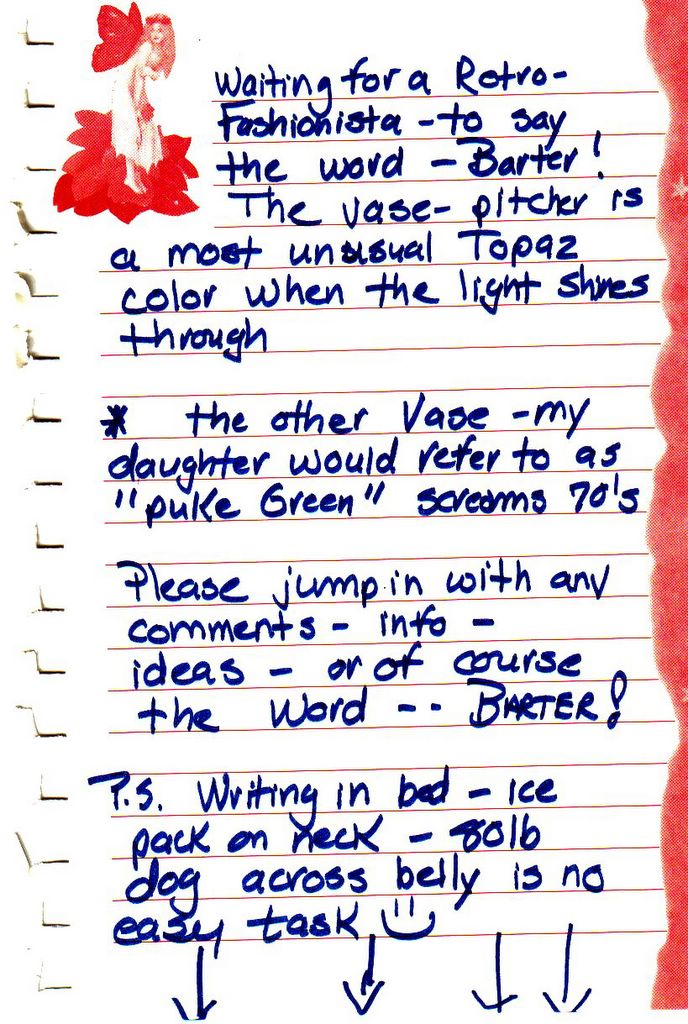 Waiting for a Retro-
Fashionista - to say
the word - Barter!
The vase- pitcher is
a most unusual Topaz
color when the light shines
through
* the other Vase - my
daughter would refer to as
"puke Green" screams 70's
Please jump in with any
comments - info -
ideas - or of course
the word -- BARTER!
P.S. Writing in bed - ice
pack on neck - 80lb
dog across belly is no
easy task